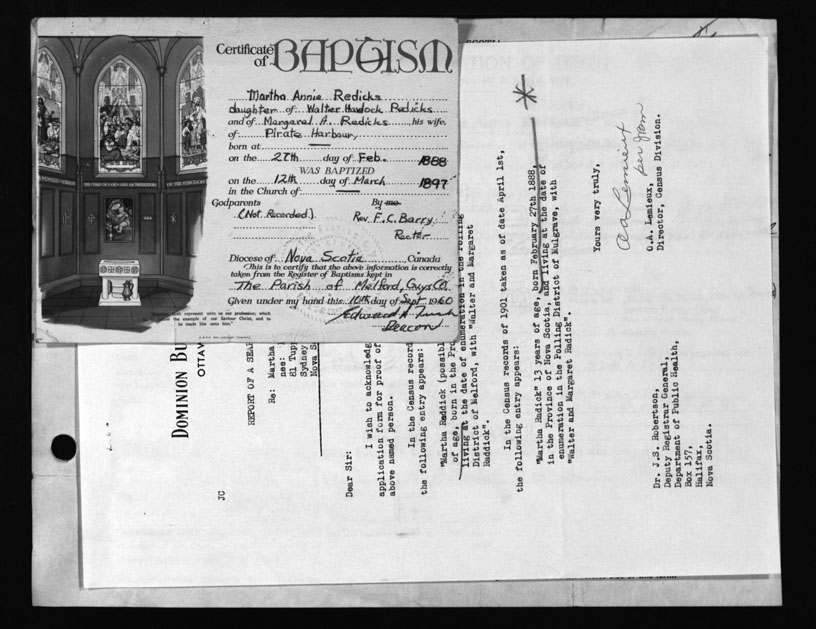 Certificate of BAPTISM
Martha Annie Redicks
daughter of Walter Havlock Redicks
and of Margaret A. Redicks, his wife,
of Pirate Harbour,
born at —
on the 27th day of Feb. 1888
WAS BAPTIZED
on the 12th day of March 1897
in the Church of —
Godparents By me
(Not Recorded) Rev. F.C. Barry
Rector
Diocese of Nova Scotia, Canada
This is to certify that the above information is correctly
taken from the Register of Baptisms kept in
The Parish of Melford, Guys Co.
Given under my hand this 10th day of Sept 1960
Edward A.
Deacon
represent unto us our profession; which
the example of our Saviour Christ, and to
be made like unto him."
DOMINION BU
OTTAW
JC
REPORT OF A SEAR
Re: Martha
nee:
81 Tupp
Sydney
Nova S
Dear Sir:
I wish to acknowledg
application form for proof of
above named person.
In the Census record
the following entry appears:
"Martha Reddick (possibl
of age, born in the Pro
living at the date of enumeration in the Polling
District of Melford, with "Walter and Margaret
Raddick".
In the Census records of 1901 taken as of date April 1st,
the following entry appears:
"Martha Radick" 13 years of age, born February 27th 1888,
in the Province of Nova Scotia, and living at the date of
enumeration in the Polling District of Mulgrave, with
"Walter and Margaret Radick".
Yours very truly,
O A Lemieux
per
O.A. Lemieux,
Director, Census Division.
Dr. J.S. Robertson,
Deputy Registrar General,
Department of Public Health,
Box 157,
Halifax,
Nova Scotia.